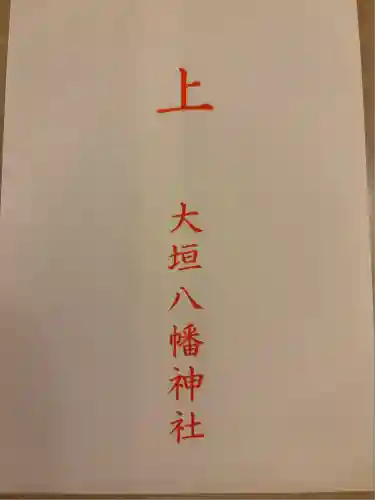 上
大垣八幡神社